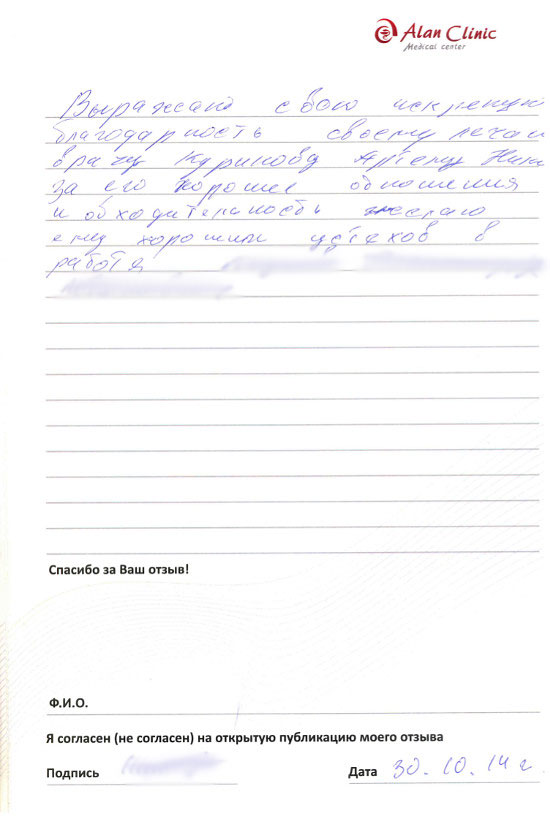 Alan Clinic
Medical center
Выражаю свою искреннюю
благодарность своему лечащ
врачу Артему Ник
за его хорошие отношения
и обходительность желаю
ему хороших успехов в
работе
Спасибо за Ваш отзыв!
Ф.И.О.
Я согласен (не согласен) на открытую публикацию моего отзыва
Подпись
Дата 30. 10. 14 г.